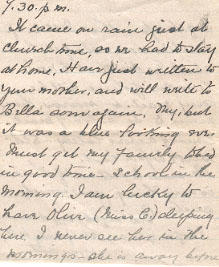 7.30. p.m.
It came on rain just at
church time, so we had to stay
at home. Have just written to
your mother, and will write to
Bella soon again. My, but
it was a blue looking
Must get my family to bed
in good time - School in the
morning. I am lucky to
have Olive (Miss C) sleeping
here. I never see her in the
mornings - she is away before